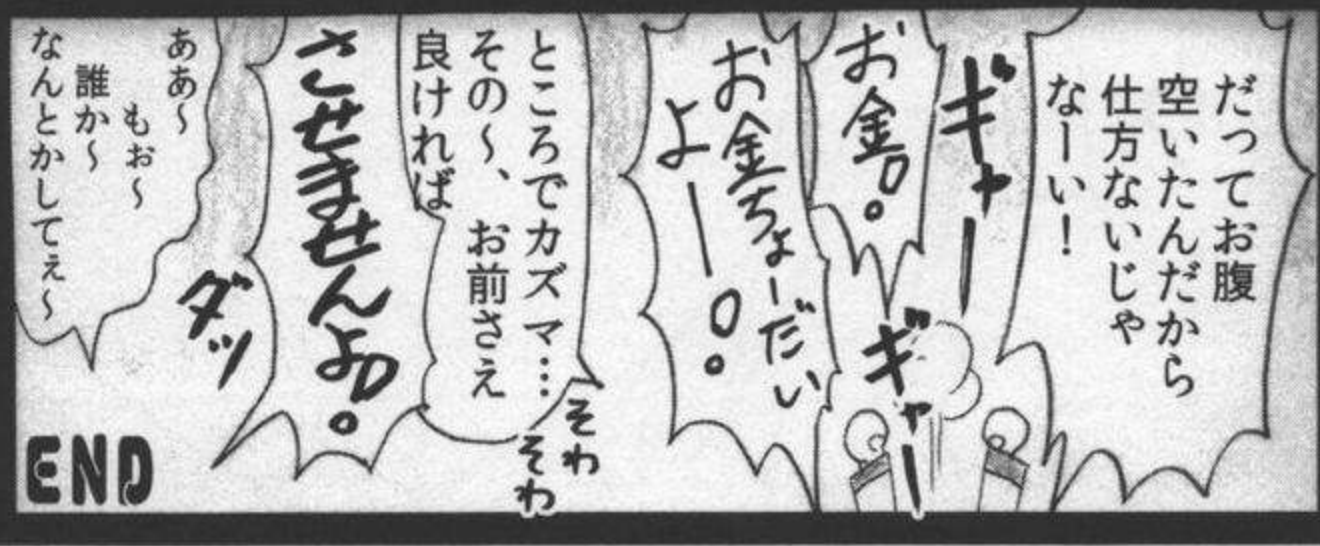 だってお腹
空いたんだから
仕方ないじゃ
なーい!
ギャー
ギャー
お金!
お金ちょーだい
よー!
ところでカズマ…
その〜、お前さえ
良ければ
そわ
そわ
させませんよ!
ダッ
ああ〜
もぉ〜
誰か〜
なんとかしてぇ〜
END